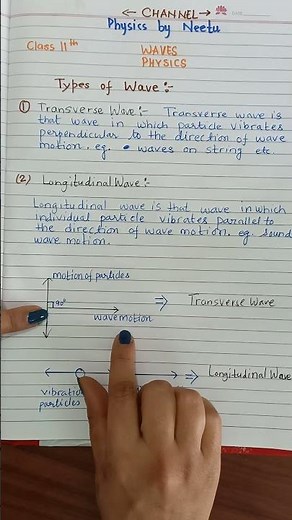 ← CHANNEL →
Physics by Neetu
Class 11th
WAVES
PHYSICS
Types of Wave :-
(1) Transverse Wave :- Transverse wave is
that wave in which particle vibrates
perpendicular to the direction of wave
motion. eg. waves on string etc.
(2) Longitudinal Wave :-
Longitudinal wave is that wave in which
individual particle vibrates parallel to
the direction of wave motion. eg. Sound
wave motion.
motion of particles
90°
wave motion
⇒ Transverse Wave
⇒ Longitudinal Wave
particles